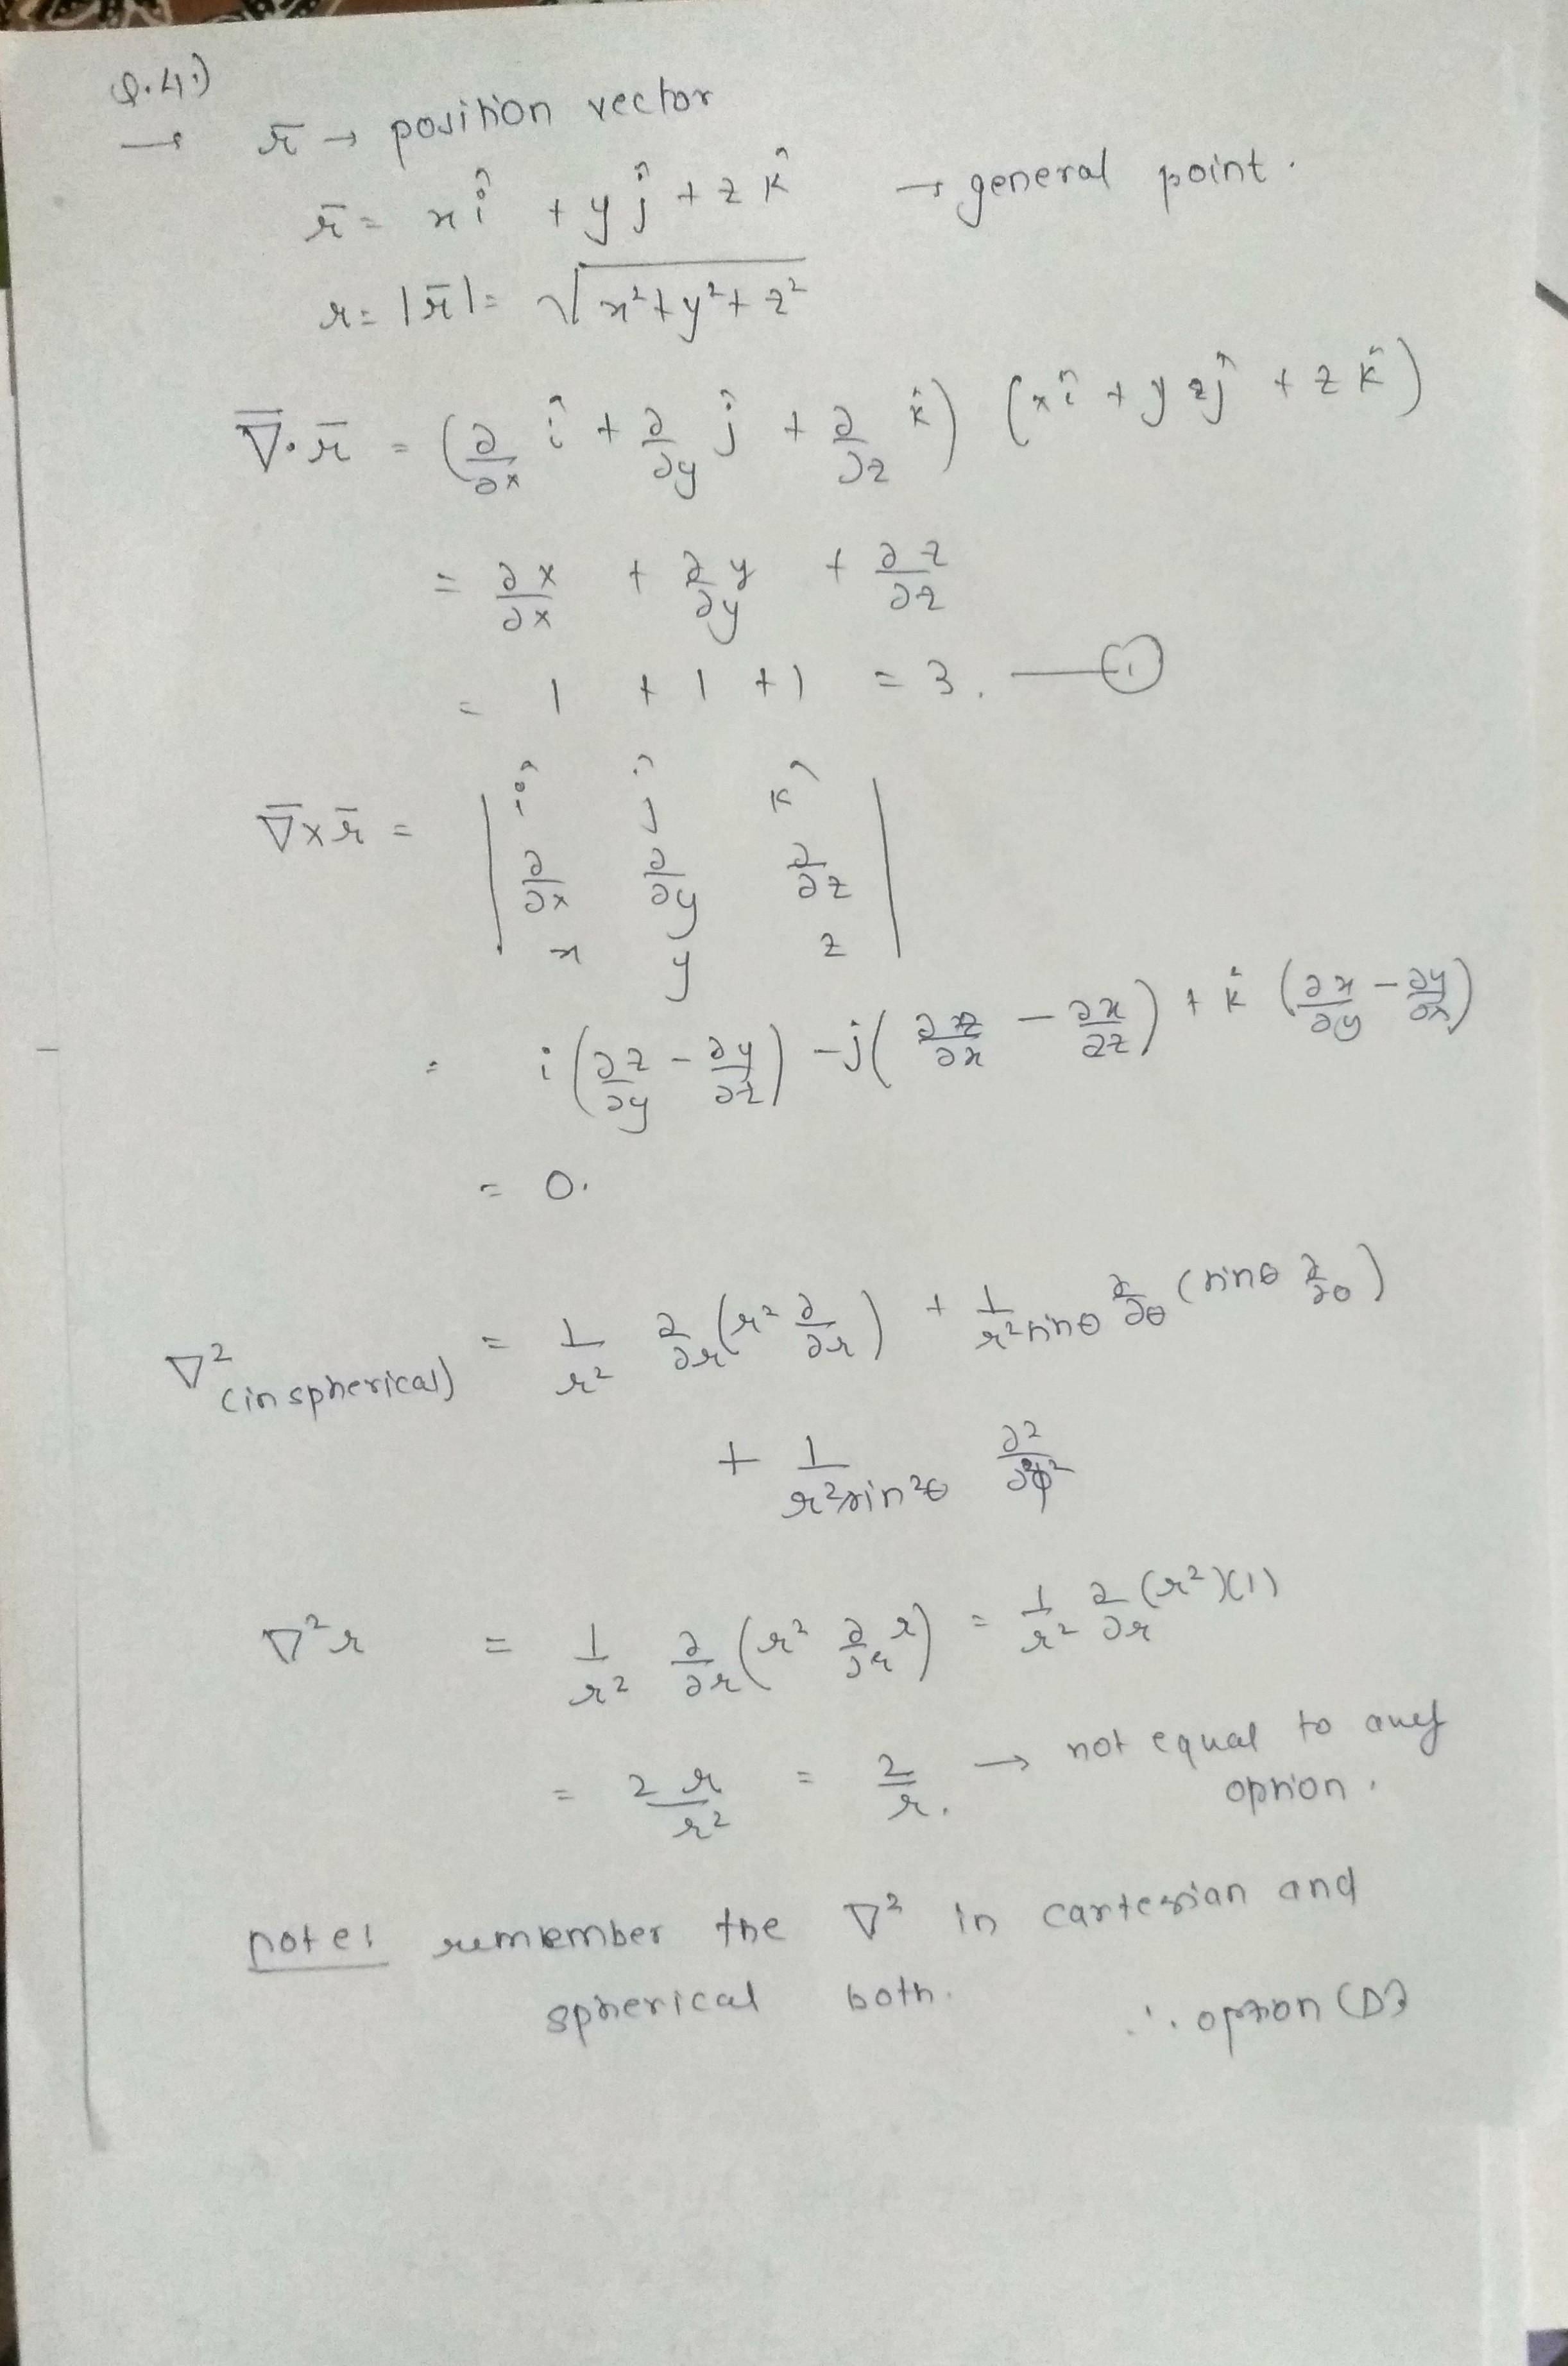 Q.4:)
→ r̄ → position vector
r̄ = x î + y ĵ + z k̂ → general point.
r = |r̄| = √(x² + y² + z²)
∇̄·r̄ = (∂/∂x î + ∂/∂y ĵ + ∂/∂z k̂) (x î + y ĵ + z k̂)
= ∂x/∂x + ∂y/∂y + ∂z/∂z
= 1 + 1 + 1 = 3. — ①
∇̄ × r̄ = | î ĵ k̂ |
| ∂/∂x ∂/∂y ∂/∂z |
| x y z |
= i (∂z/∂y - ∂y/∂z) - j (∂z/∂x - ∂x/∂z) + k̂ (∂x/∂y - ∂y/∂x)
= 0.
∇² (in spherical) = 1/r² ∂/∂r (r² ∂/∂r) + 1/r² sinθ ∂/∂θ (sinθ ∂/∂θ)
+ 1/r² sin²θ ∂²/∂φ²
∇²r = 1/r² ∂/∂r (r² ∂/∂r r) = 1/r² ∂/∂r (r²)(1)
= 2r/r² = 2/r. → not equal to any
option.
note: remember the ∇² in cartesian and
spherical both.
∴ option (D)